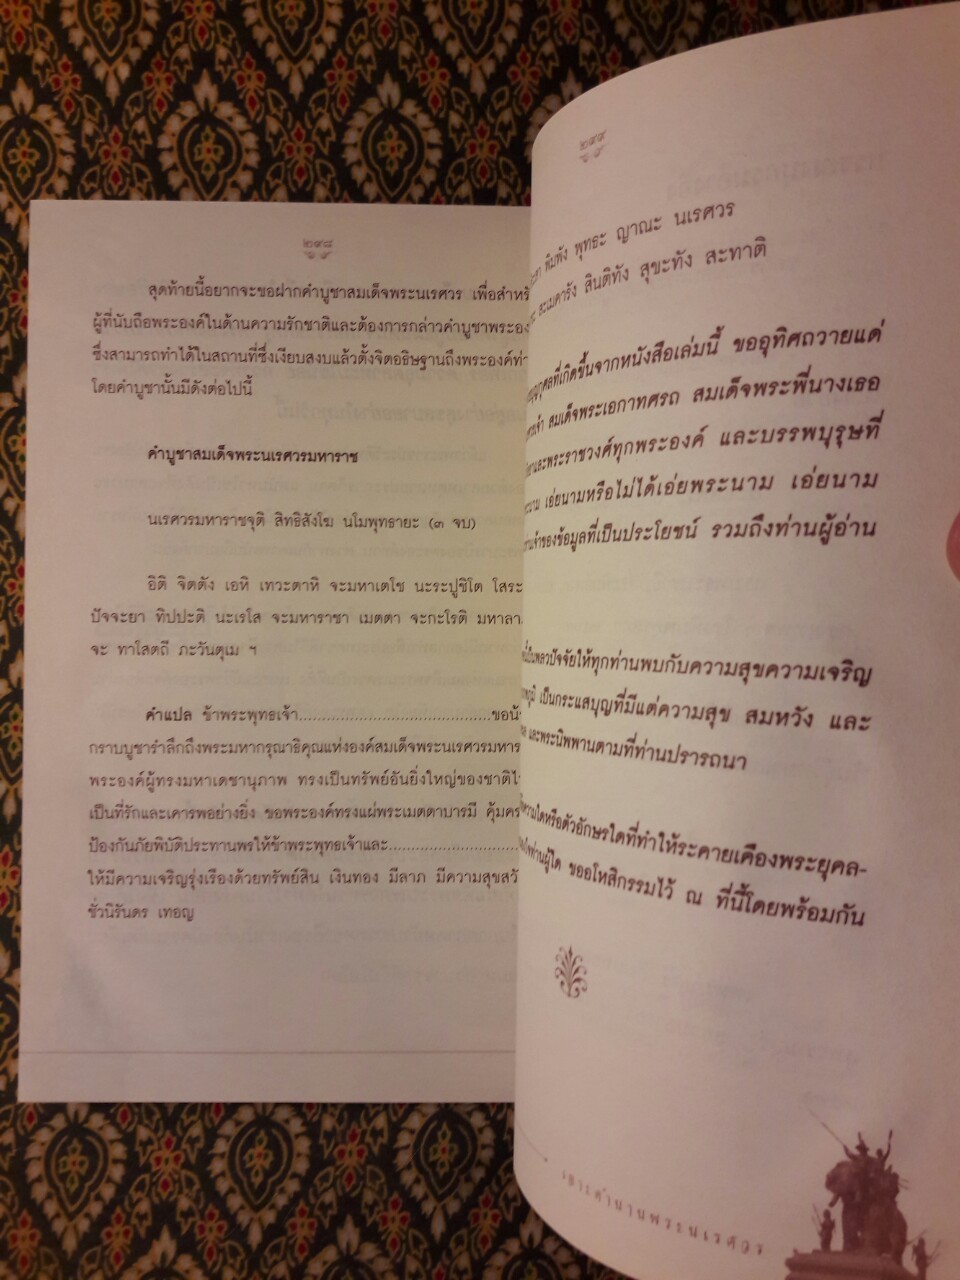 ๒๙๘
สุดท้ายนี้อยากจะขอฝากคำบูชาสมเด็จพระนเรศวร เพื่อสำหรั
ผู้ที่นับถือพระองค์ในด้านความรักชาติและต้องการกล่าวคำบูชาพระอง
ซึ่งสามารถทำได้ในสถานที่ซึ่งเงียบสงบแล้วตั้งจิตอธิษฐานถึงพระองค์ท่า
โดยคำบูชานั้นมีดังต่อไปนี้
คำบูชาสมเด็จพระนเรศวรมหาราช
นเรศวรมหาราชจุติ สิทธิสังโฆ นโมพุทธายะ (๓ จบ)
อิติ จิตตัง เอหิ เทวะตาหิ จะมหาเตโช นะระปูชิโต โสระ
ปัจจะยา ทิปปะติ นะเรโส จะมหาราชา เมตตา จะกะโรติ มหาลา
จะ ทาโสตถี ภะวันตุเม ฯ
คำแปล ข้าพระพุทธเจ้า..........................................ขอน้
กราบบูชารำลึกถึงพระมหากรุณาธิคุณแห่งองค์สมเด็จพระนเรศวรมหาร
พระองค์ผู้ทรงมหาเดชานุภาพ ทรงเป็นทรัพย์อันยิ่งใหญ่ของชาติไ
เป็นที่รักและเคารพอย่างยิ่ง ขอพระองค์ทรงแผ่พระเมตตาบารมี คุ้มคร
ป้องกันภัยพิบัติประทานพรให้ข้าพระพุทธเจ้าและ..............................
ให้มีความเจริญรุ่งเรืองด้วยทรัพย์สิน เงินทอง มีลาภ มีความสุขสวั
ชั่วนิรันดร เทอญ
๒๙๙
พิมพัง พุทธะ ญาณะ นเรศวร
สะเมคารัง สินติทัง สุขะทัง สะทาติ
กุศลที่เกิดขึ้นจากหนังสือเล่มนี้ ขออุทิศถวายแด่
สมเด็จพระเอกาทศรถ สมเด็จพระพี่นางเธอ
และพระราชวงศ์ทุกพระองค์ และบรรพบุรุษที่
เอ่ยนามหรือไม่ได้เอ่ยพระนาม เอ่ยนาม
เจ้าของข้อมูลที่เป็นประโยชน์ รวมถึงท่านผู้อ่าน
พลวปัจจัยให้ทุกท่านพบกับความสุขความเจริญ
เป็นกระแสบุญที่มีแต่ความสุข สมหวัง และ
และพระนิพพานตามที่ท่านปรารถนา
ความใดหรือตัวอักษรใดที่ทำให้ระคายเคืองพระยุคล-
ท่านผู้ใด ขออโหสิกรรมไว้ ณ ที่นี้โดยพร้อมกัน
เจาะตำนานพระนเรศวร